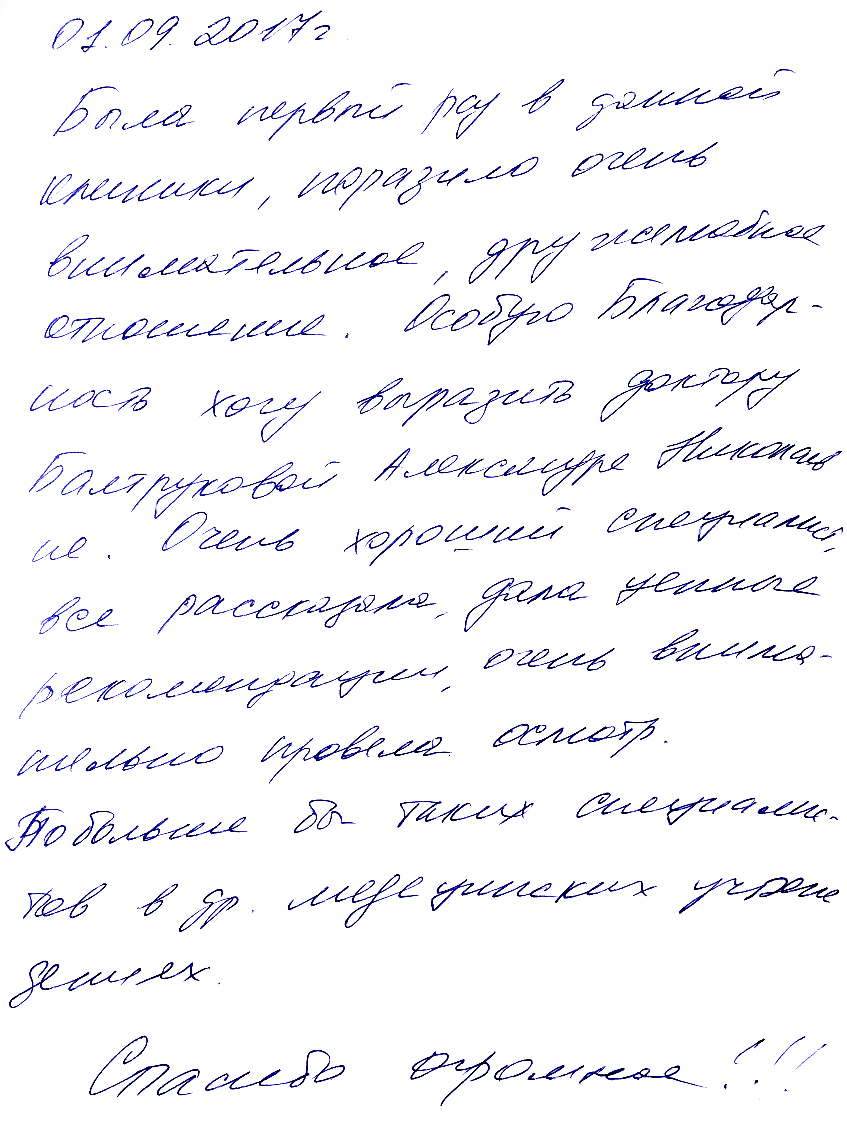 01.09.2017г
Была первый раз в данной
клиники, поразило очень
внимательное, дружелюбное
отношение. Особую Благодар-
ность хочу выразить доктору
Балтруковой Александре Николаев
не. Очень хороший специалист,
все рассказала, дала ценные
рекомендации, очень внима-
тельно провела осмотр.
Побольше бы таких специалис-
тов в др. медецинских учреж
дениях.
Спасибо огромное!!!